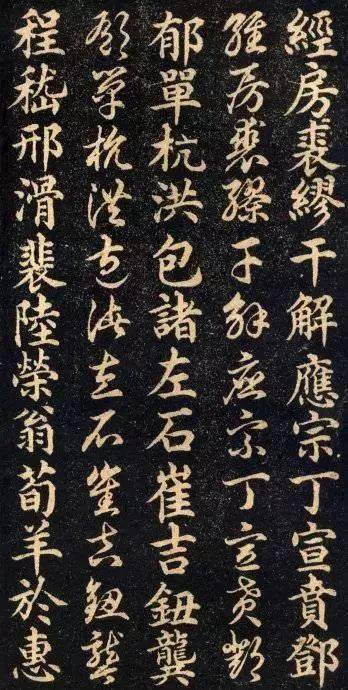 經房裘繆干解應宗丁宣賁鄧
經房裘繆干解應宗丁宣賁鄧
郁單杭洪包諸左石崔吉鈕龔
郁單杭洪包諸左石崔吉鈕龔
程嵇邢滑裴陸榮翁荀羊於惠